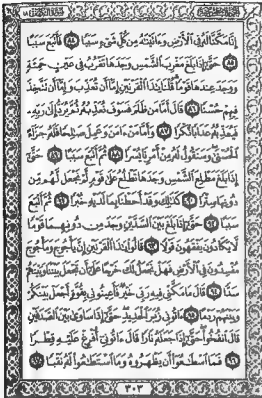 إِنَّا مَكَّنَّا لَهُۥ فِى ٱلْأَرْضِ وَءَاتَيْنَٰهُ مِن كُلِّ شَىْءٍ سَبَبًا ٨٤ فَأَتْبَعَ سَبَبًا
٨٥ حَتَّىٰٓ إِذَا بَلَغَ مَغْرِبَ ٱلشَّمْسِ وَجَدَهَا تَغْرُبُ فِى عَيْنٍ حَمِئَةٍ
وَوَجَدَ عِندَهَا قَوْمًا قُلْنَا يَٰذَا ٱلْقَرْنَيْنِ إِمَّآ أَن تُعَذِّبَ وَإِمَّآ أَن تَتَّخِذَ
فِيهِمْ حُسْنًا ٨٦ قَالَ أَمَّا مَن ظَلَمَ فَسَوْفَ نُعَذِّبُهُۥ ثُمَّ يُرَدُّ إِلَىٰ رَبِّهِۦ
فَيُعَذِّبُهُۥ عَذَابًا نُّكْرًا ٨٧ وَأَمَّا مَنْ ءَامَنَ وَعَمِلَ صَٰلِحًا فَلَهُۥ جَزَآءً
ٱلْحُسْنَىٰ وَسَنَقُولُ لَهُۥ مِنْ أَمْرِنَا يُسْرًا ٨٨ ثُمَّ أَتْبَعَ سَبَبًا ٨٩ حَتَّىٰٓ
إِذَا بَلَغَ مَطْلِعَ ٱلشَّمْسِ وَجَدَهَا تَطْلُعُ عَلَىٰ قَوْمٍ لَّمْ نَجْعَل لَّهُم مِّن
دُونِهَا سِتْرًا ٩٠ كَذَٰلِكَ وَقَدْ أَحَطْنَا بِمَا لَدَيْهِ خُبْرًا ٩١ ثُمَّ أَتْبَعَ
سَبَبًا ٩٢ حَتَّىٰٓ إِذَا بَلَغَ بَيْنَ ٱلسَّدَّيْنِ وَجَدَ مِن دُونِهِمَا قَوْمًا
لَّا يَكَادُونَ يَفْقَهُونَ قَوْلًا ٩٣ قَالُوا۟ يَٰذَا ٱلْقَرْنَيْنِ إِنَّ يَأْجُوجَ وَمَأْجُوجَ
مُفْسِدُونَ فِى ٱلْأَرْضِ فَهَلْ نَجْعَلُ لَكَ خَرْجًا عَلَىٰٓ أَن تَجْعَلَ بَيْنَنَا وَبَيْنَهُمْ
سَدًّا ٩٤ قَالَ مَا مَكَّنِّى فِيهِ رَبِّى خَيْرٌ فَأَعِينُونِى بِقُوَّةٍ أَجْعَلْ بَيْنَكُمْ
وَبَيْنَهُمْ رَدْمًا ٩٥ ءَاتُونِى زُبَرَ ٱلْحَدِيدِ حَتَّىٰٓ إِذَا سَاوَىٰ بَيْنَ ٱلصَّدَفَيْنِ
قَالَ ٱنفُخُوا۟ حَتَّىٰٓ إِذَا جَعَلَهُۥ نَارًا قَالَ ءَاتُونِىٓ أُفْرِغْ عَلَيْهِ قِطْرًا
٩٦ فَمَا ٱسْطَٰعُوٓا۟ أَن يَظْهَرُوهُ وَمَا ٱسْتَطَٰعُوا۟ لَهُۥ نَقْبًا ٩٧
٣٠٣